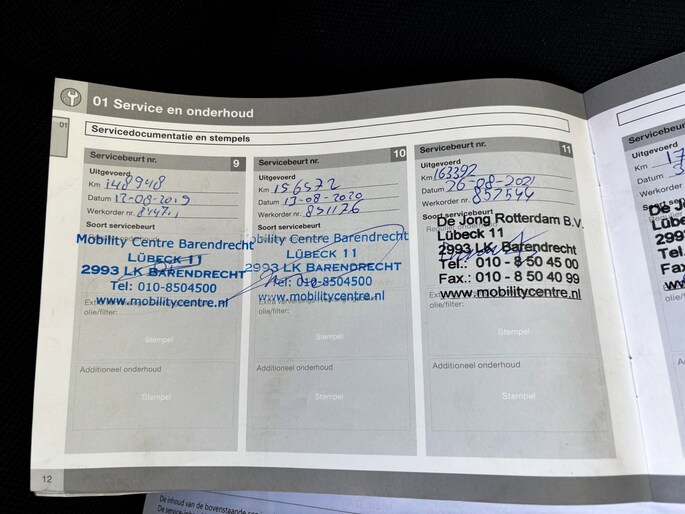 01 Service en onderhoud
01
Servicedocumentatie en stempels
Servicebeurt nr. 9
Uitgevoerd
Km 148948
Datum 12-08-2019
Werkorder nr.
Soort servicebeurt
Mobility Centre Barendrecht
LÜBECK 11
2993 LK BARENDRECHT
Tel: 010-8504500
www.mobilitycentre.nl
olie/filter:
Stempel
Additioneel onderhoud
Stempel
Servicebeurt nr. 10
Uitgevoerd
Km 156572
Datum 13-08-2020
Werkorder nr. 851176
Soort servicebeurt
Mobility Centre Barendrecht
LÜBECK 11
2993 LK BARENDRECHT
Tel: 010-8504500
www.mobilitycentre.nl
olie/filter:
Stempel
Additioneel onderhoud
Stempel
Servicebeurt nr. 11
Uitgevoerd
Km 163392
Datum 26-08-2021
Werkorder nr. 857544
Soort servicebeurt
De Jong Rotterdam B.V.
Lübeck 11
2993 LK Barendrecht
Tel.: 010 - 8 50 45 00
Fax.: 010 - 8 50 40 99
www.mobilitycentre.nl
olie/filter:
Stempel
Additioneel onderhoud
Stempel
12
Servicebeurt
Uitgevoerd
Km 17
Datum
Werkorder
Soort
De Jo
Lübe
2993
Tel.:
Fax.
De inhoud van de bovenstaande